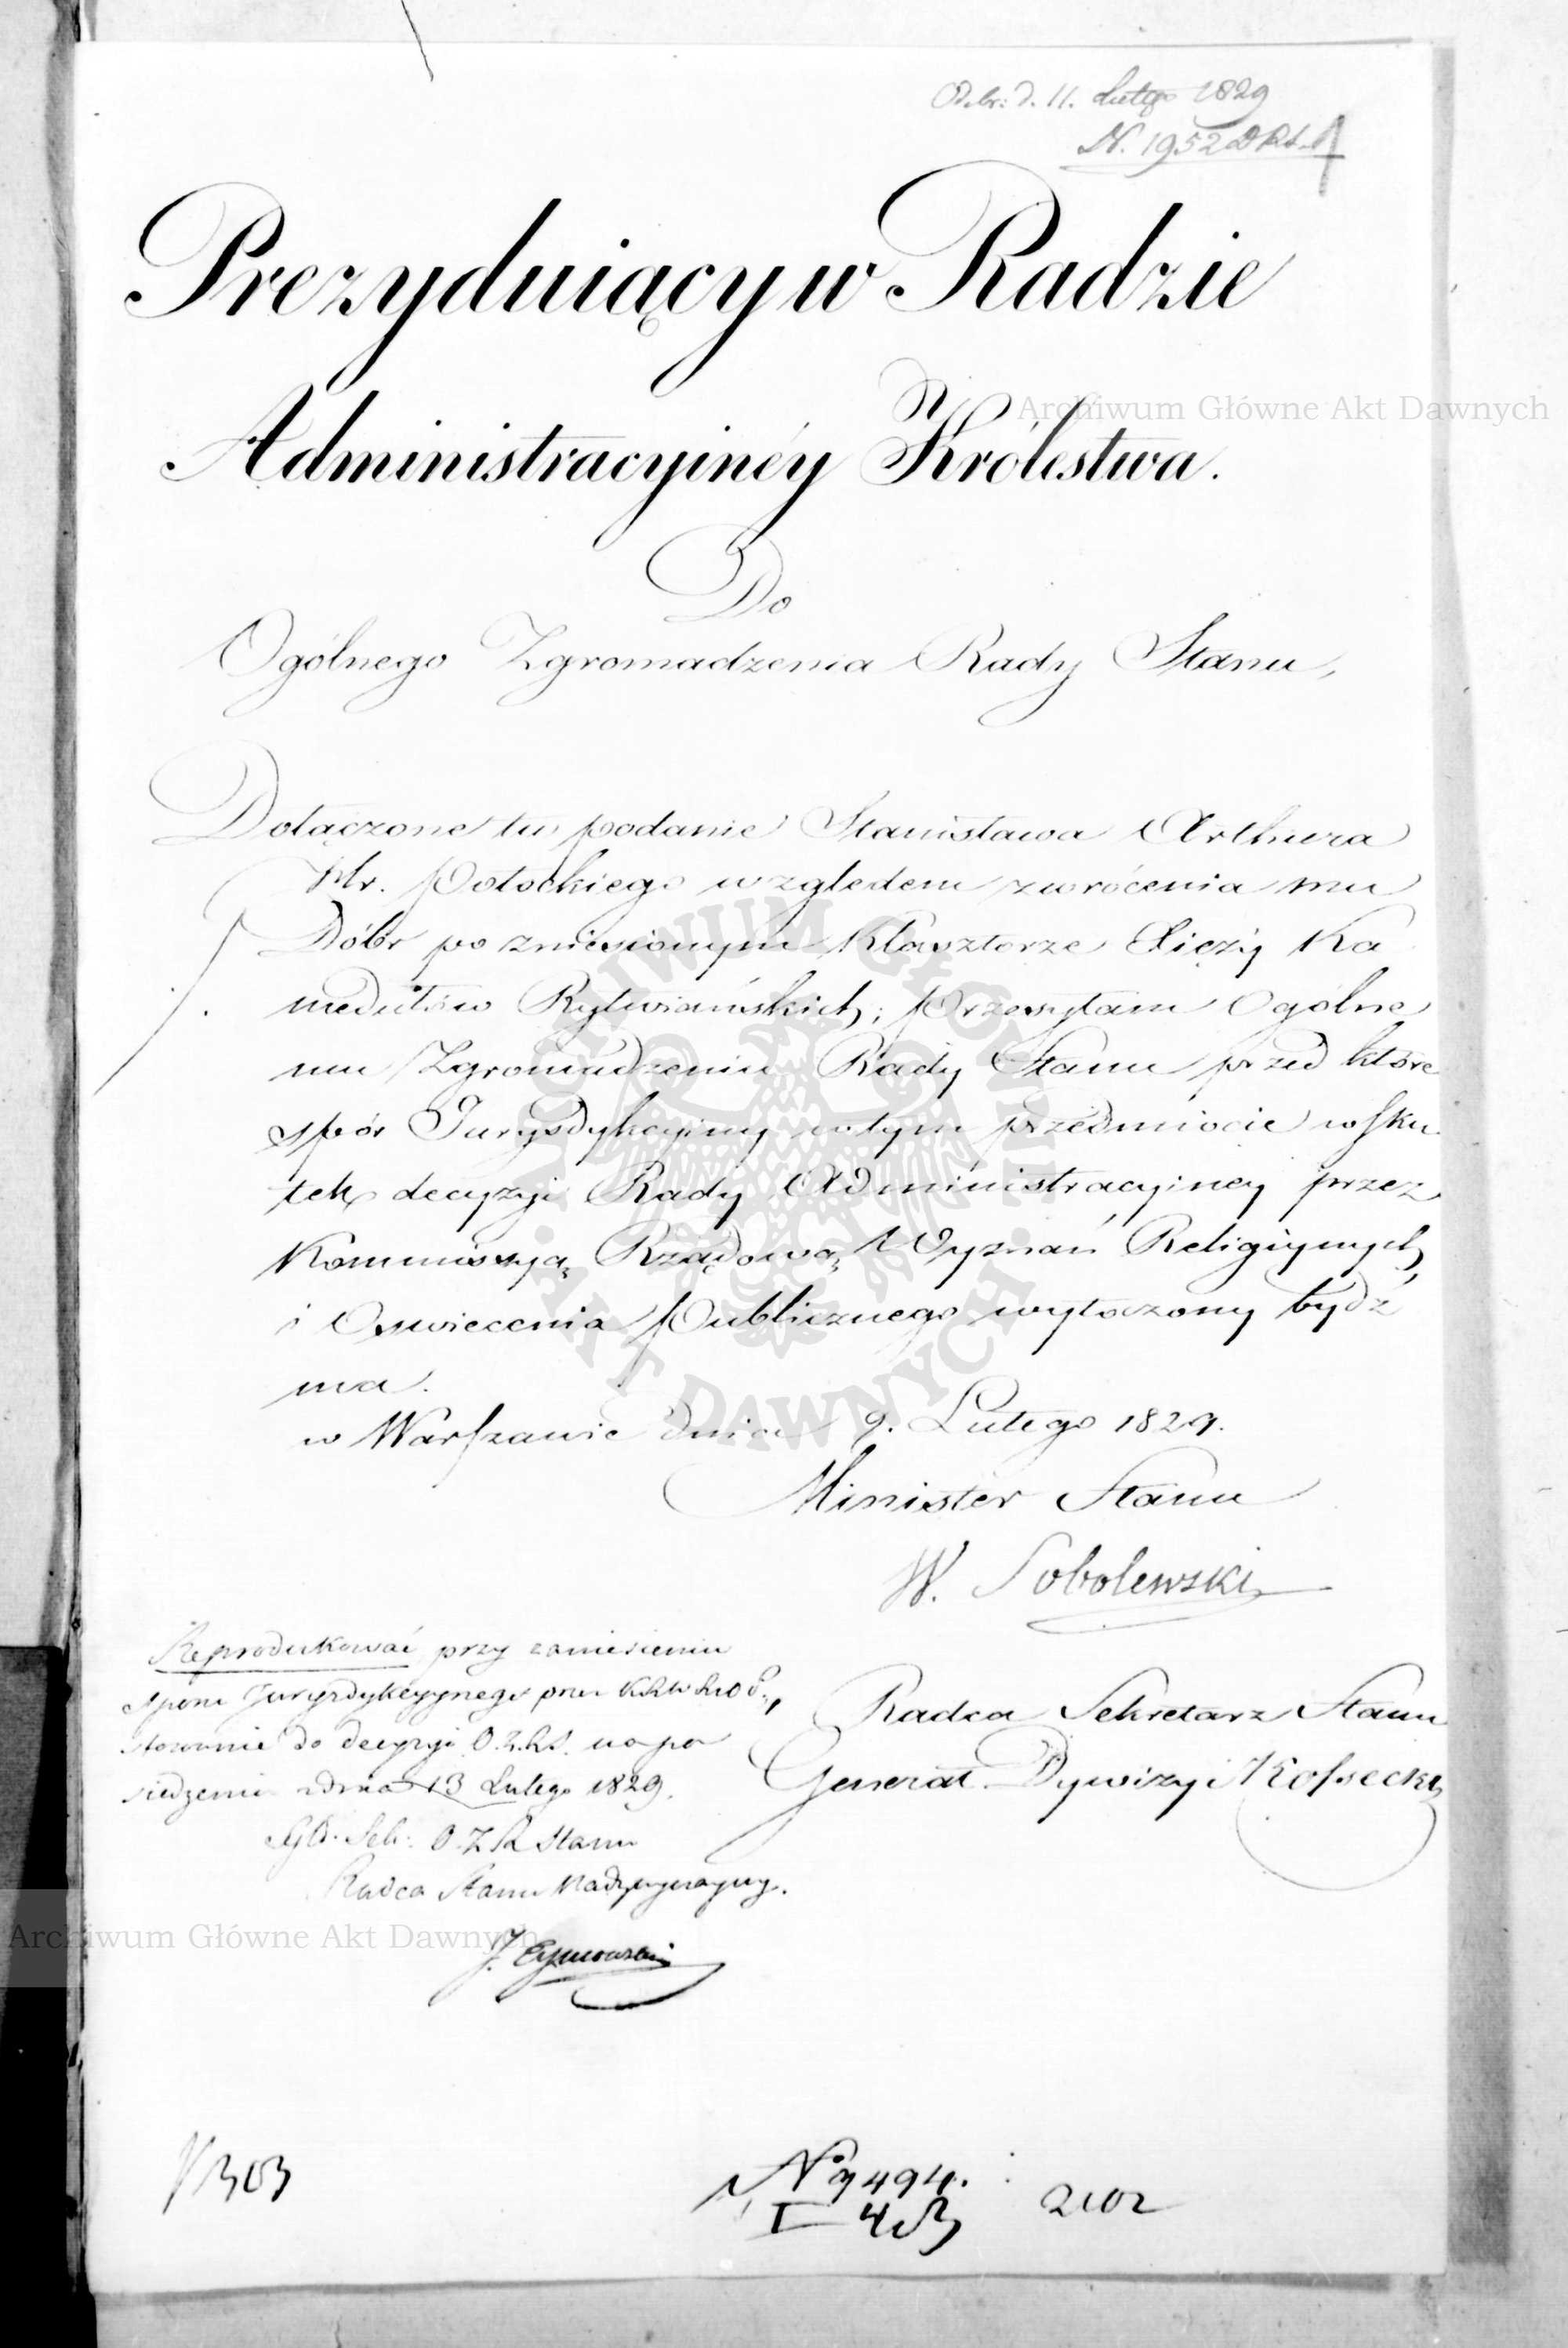 Odebr: d. 11. Lutego 1829
N. 1952
Prezyduiący w Radzie
Administracyinéy Królestwa.
Do
Ogólnego Zgromadzenia Rady Stanu,
Dołączone tu podanie Stanisława Arthura
Hr. Potockiego względem zwrócenia mu
Dóbr po zniesionym Klasztorze Xięży Ka
medułów Rytwiańskich, przesyłam Ogólne
mu Zgromadzeniu Rady Stanu przed które
spór Jurysdykcyiny w tym przedmiocie wsku
tek decyzyi Rady Administracyiney przez
Kommissyą Rządową Wyznań Religiynych
i Oswiecenia Publicznego wytoczony bydź
ma.
w Warszawie dnia 9. Lutego 1829.
Minister Stanu
W. Sobolewski
Radca Sekretarz Stanu
Generał Dywizyi Kossecki
Reprodukować przy zaniesieniu
sporu Jurysdykcyynego przez
stosownie do decyzyi O.Z.R.S. na po
siedzeniu z dnia 13 Lutego 1829.
Sekr: O.Z.R Stanu
Radca Stanu Nadzwyczayny.
J. Tymowski
303
No 9494.
I
2102
Archiwum Główne Akt Dawnych
Archiwum Główne Akt Dawnych
ARCHIWUM GŁÓWNE · AKT DAWNYCH ·